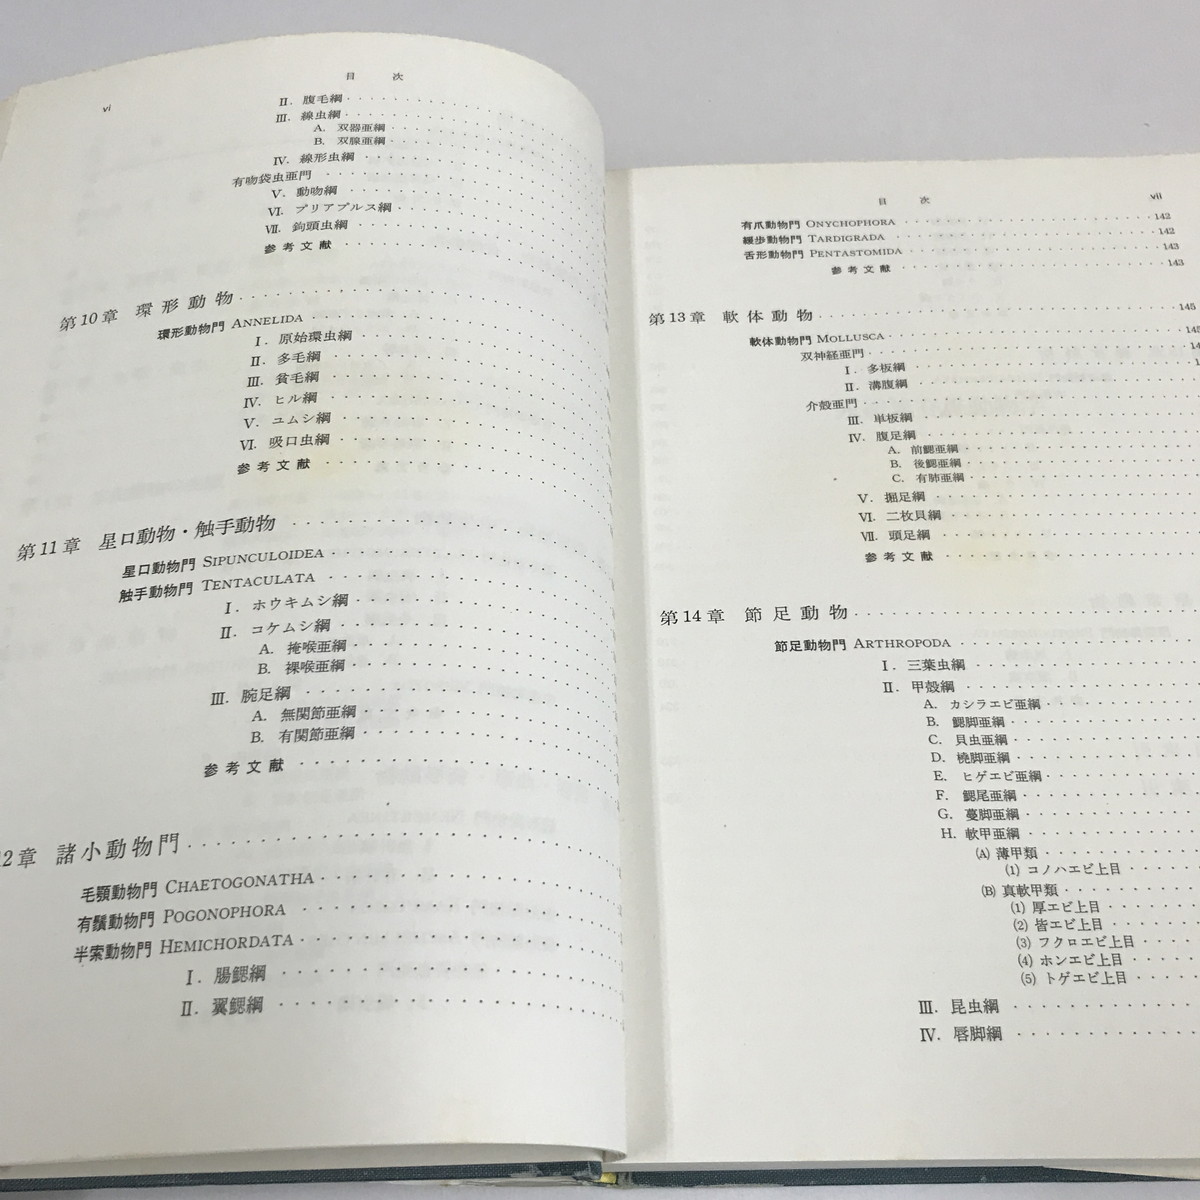 目 次
vi
Ⅱ. 腹毛綱
Ⅲ. 線虫綱
A. 双器亜綱
B. 双腺亜綱
Ⅳ. 線形虫綱
有吻袋虫亜門
Ⅴ. 動吻綱
Ⅵ. プリアプルス綱
Ⅶ. 鉤頭虫綱
参考文献
第10章 環形動物
環形動物門 ANNELIDA
Ⅰ. 原始環虫綱
Ⅱ. 多毛綱
Ⅲ. 貧毛綱
Ⅳ. ヒル綱
Ⅴ. ユムシ綱
Ⅵ. 吸口虫綱
参考文献
第11章 星口動物・触手動物
星口動物門 SIPUNCULOIDEA
触手動物門 TENTACULATA
Ⅰ. ホウキムシ綱
Ⅱ. コケムシ綱
A. 掩喉亜綱
B. 裸喉亜綱
Ⅲ. 腕足綱
A. 無関節亜綱
B. 有関節亜綱
参考文献
2章 諸小動物門
毛顎動物門 CHAETOGONATHA
有鬚動物門 POGONOPHORA
半索動物門 HEMICHORDATA
Ⅰ. 腸鰓綱
Ⅱ. 翼鰓綱
目 次
vii
有爪動物門 ONYCHOPHORA 142
緩歩動物門 TARDIGRADA 142
舌形動物門 PENTASTOMIDA 143
参考文献 143
第13章 軟体動物 145
軟体動物門 MOLLUSCA 145
双神経亜門 14
Ⅰ. 多板綱 1
Ⅱ. 溝腹綱
介殻亜門
Ⅲ. 単板綱
Ⅳ. 腹足綱
A. 前鰓亜綱
B. 後鰓亜綱
C. 有肺亜綱
Ⅴ. 掘足綱
Ⅵ. 二枚貝綱
Ⅶ. 頭足綱
参考文献
第14章 節足動物
節足動物門 ARTHROPODA
Ⅰ. 三葉虫綱
Ⅱ. 甲殻綱
A. カシラエビ亜綱
B. 鰓脚亜綱
C. 貝虫亜綱
D. 橈脚亜綱
E. ヒゲエビ亜綱
F. 鰓尾亜綱
G. 蔓脚亜綱
H. 軟甲亜綱
(A) 薄甲類
(1) コノハエビ上目
(B) 真軟甲類
(1) 厚エビ上目
(2) 皆エビ上目
(3) フクロエビ上目
(4) ホンエビ上目
(5) トゲエビ上目
Ⅲ. 昆虫綱
Ⅳ. 唇脚綱